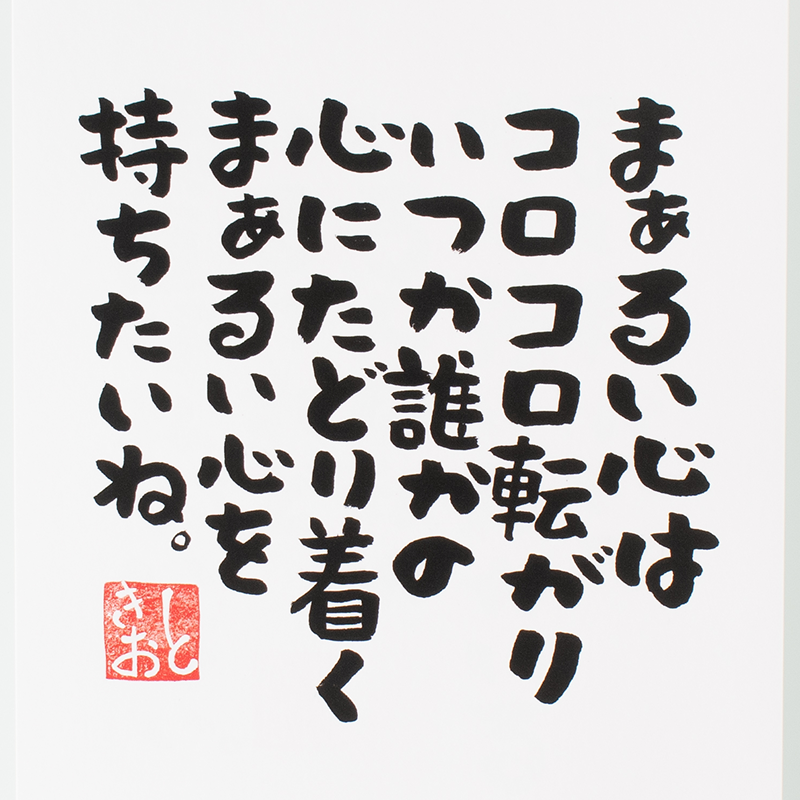 まぁるい心は
コロコロ転がり
いつか誰かの
心にたどり着く
まぁるい心を
持ちたいね。
しと
きお